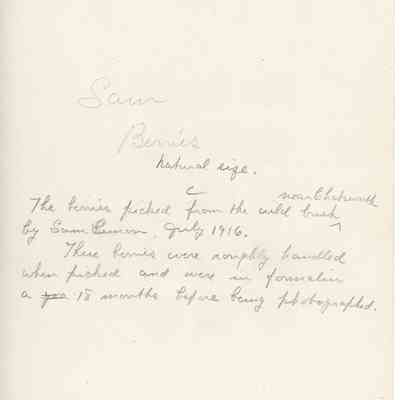 Sam
Berries
Natural size.
C
near Chatsworth
The berries picked from the wild bush
by Sam Lemon, July 1916.
These berries were roughly handled
when picked and were in formalin
a yea 18 months before being photographed.